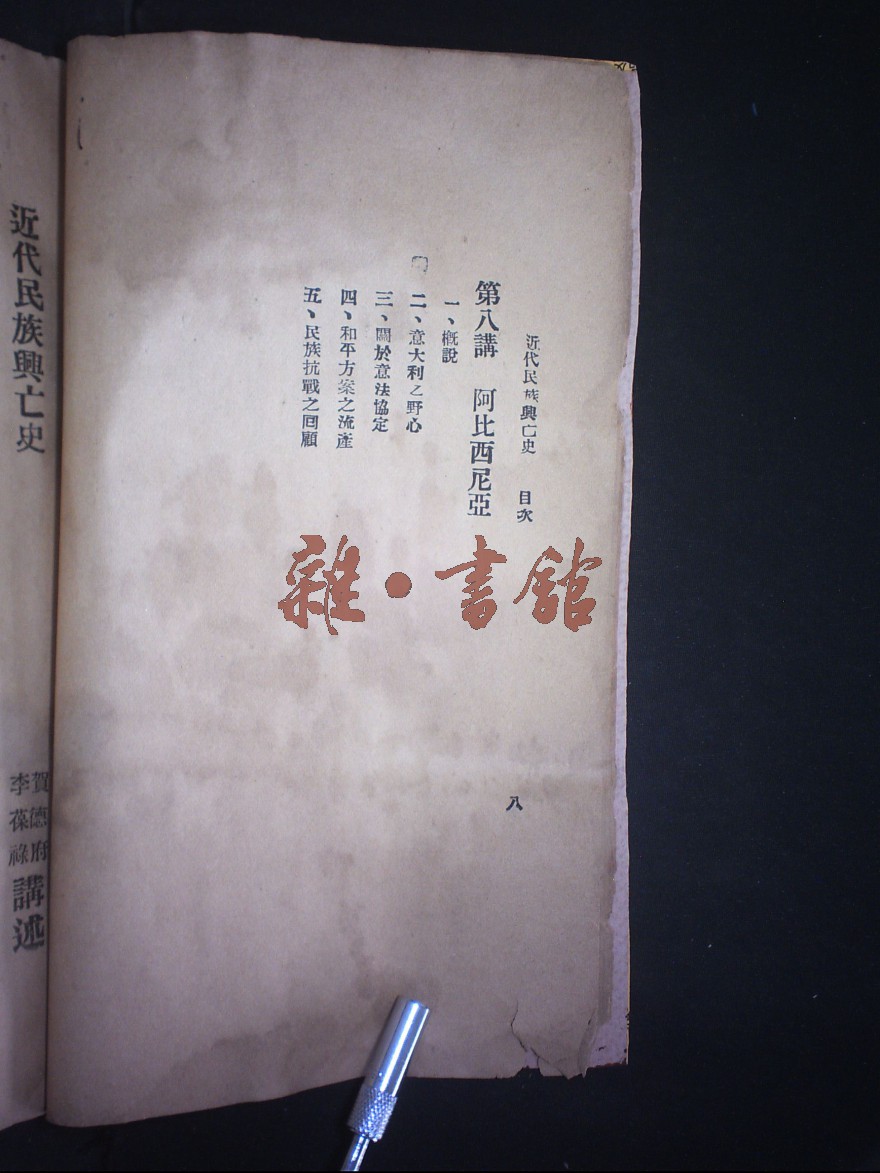 近代民族興亡史 目次
第八講 阿比西尼亞
一、概說
二、意大利之野心
三、關於意法協定
四、和平方案之流產
五、民族抗戰之囘顧
八
雜·書館
近代民族興亡史
賀德府
李葆祿
講述